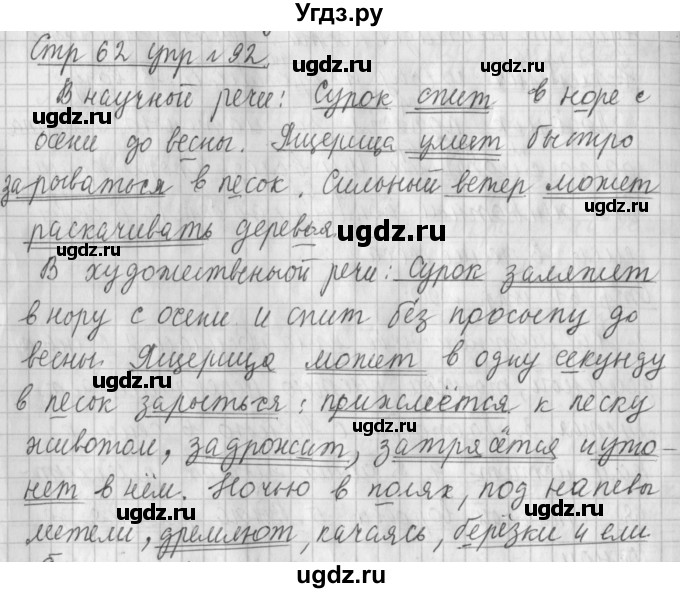 Угдз.ру
Стр 62 упр № 92
ugdz.ru ugdz.ru
В научной речи: Сурок спит в норе с
ugdz.ru
осени до весны. Ящерица умеет быстро
ugdz.ru ugdz.ru
зарываться в песок. Сильный ветер может
ugdz.ru
раскачивать деревья.
ugdz.ru ugdz.ru
В художественной речи: Сурок заляжет
в нору с осени и спит без просыпу до
весны. Ящерица может в одну секунду
ugdz.ru ugdz.ru
в песок зарыться: приклеётся к песку
ugdz.ru
животом, задрожит, затрясётся и уто-
нет в нём. Ночью в полях, под напевы
ugdz.ru ugdz.ru
метели, дремлют, качаясь, берёзки и ели
ugdz.ru